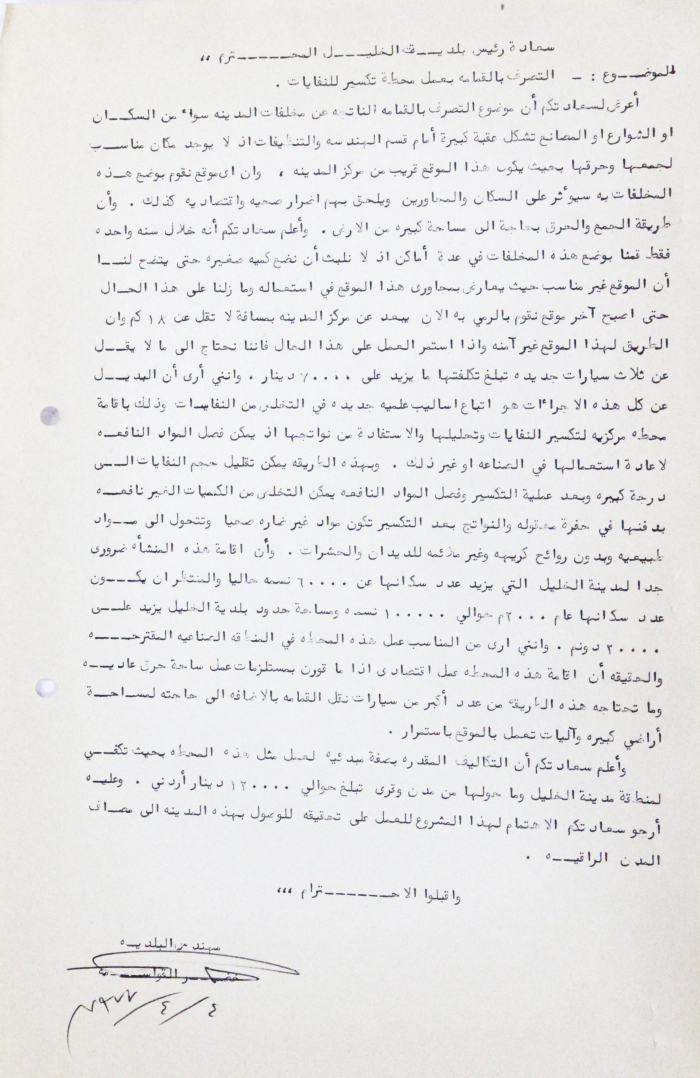 سعادة رئيس بلديـــة الخليـــل المحـــــــترم ،،
الموضـــوع : ـ التصرف بالقمامه بعمل محطة تكسير للنفايات .
أعرض لسعادتكم أن موضوع التصرف بالقمامه الناتجه عن مخلفات المدينه سواء من السكــان
او الشوارع او المصانع تشكل عقبة كبيرة أمام قسم الهندسه والتنظيفات اذ لا يوجد مكان مناسـب
لجمعها وحرقها بحيث يكون هذا الموقع قريب من مركز المدينه ، وان اى موقع نقوم بوضع هــذه
المخلفات به سيؤثر على السكان والمجاورين ويلحق بهم اضرار صحيه واقتصاديه كذلك . وأن
طريقة الجمع والحرق بحاجة الى مساحة كبيره من الارض . وأعلم سعادتكم أنه خلال سنه واحده
فقط قمنا بوضع هذه المخلفات في عدة أماكن اذ لا نلبث أن نضع كميه صغيره حتى يتضح لنــا
أن الموقع غير مناسب حيث يعارض مجاورى هذا الموقع في استعماله وما زلنا على هذا الحــال
حتى اصبح آخر موقع نقوم بالرمي به الان يبعد عن مركز المدينه بمسافة لا تقل عن ١٨ كم وان
الطريق لهذا الموقع غير آمنه واذا استمر العمل على هذا الحال فأننا نحتاج الى ما لا يقــل
عن ثلاث سيارات جديده تبلغ تكلفتها ما يزيد على ٧٠٠٠٠ دينار . وانني أرى أن البديــل
عن كل هذه الاجراءات هو اتباع اساليب علميه جديده في التخلص من النفايات وذلك باقامة
محطه مركزيه لتكسير النفايات وتحليلها والاستفادة من نواتجها اذ يمكن فصل المواد النافعــه
لاعادة استعمالها في الصناعه او غير ذلك . وبهذه الطريقه يمكن تقليل حجم النفايات الــى
درجة كبيره وبعد عملية التكسير وفصل المواد النافعه يمكن التخلص من الكميات الغير نافعــه
بدفنها في حفرة معقوله والنواتج بعد التكسير تكون مواد غير ضاره صحيا وتتحول الى مــواد
طبيعيه وبدون روائح كريهه وغير ملائمه للديدان والحشرات . وأن اقامة هذه المنشأه ضرورى
جدا لمدينة الخليل التي يزيد عدد سكانها عن ٦٠٠٠٠ نسمه حاليا والمنتظر ان يكــون
عدد سكانها عام ٢٠٠٠م حوالي ١٠٠٠٠٠ نسمه ومساحة حدود بلدية الخليل يزيد علــى
٢٠٠٠٠ دونم . وانني ارى من المناسب عمل هذه المحطه في المنطقه الصناعيه المقترحـــه
والحقيقه أن اقامة هذه المحطه عمل اقتصادى اذا ما قورن بمستلزمات عمل ساحة حرق عاديــه
وما تحتاجه هذه الطريقه من عدد أكبر من سيارات نقل القمامه بالاضافه الى حاجته لمساحــة
أراضي كبيره وآليات تعمل بالموقع باستمرار .
وأعلم سعادتكم أن التكاليف المقدره بصفة مبدئيه لعمل مثل هذه المحطه بحيث تكفــي
لمنطقة مدينة الخليل وما حولها من مدن وقرى تبلغ حوالي ١٢٠٠٠٠ دينار أردني . وعليــه
أرجو سعادتكم الاهتمام لهذا المشروع للعمل على تحقيقه للوصول بهذه المدينه الى مصــاف
المدن الراقيــه .
واقبلوا الاحـــــــــترام ،،،
مهندس البلديــه
القواســمه
٤/٤/